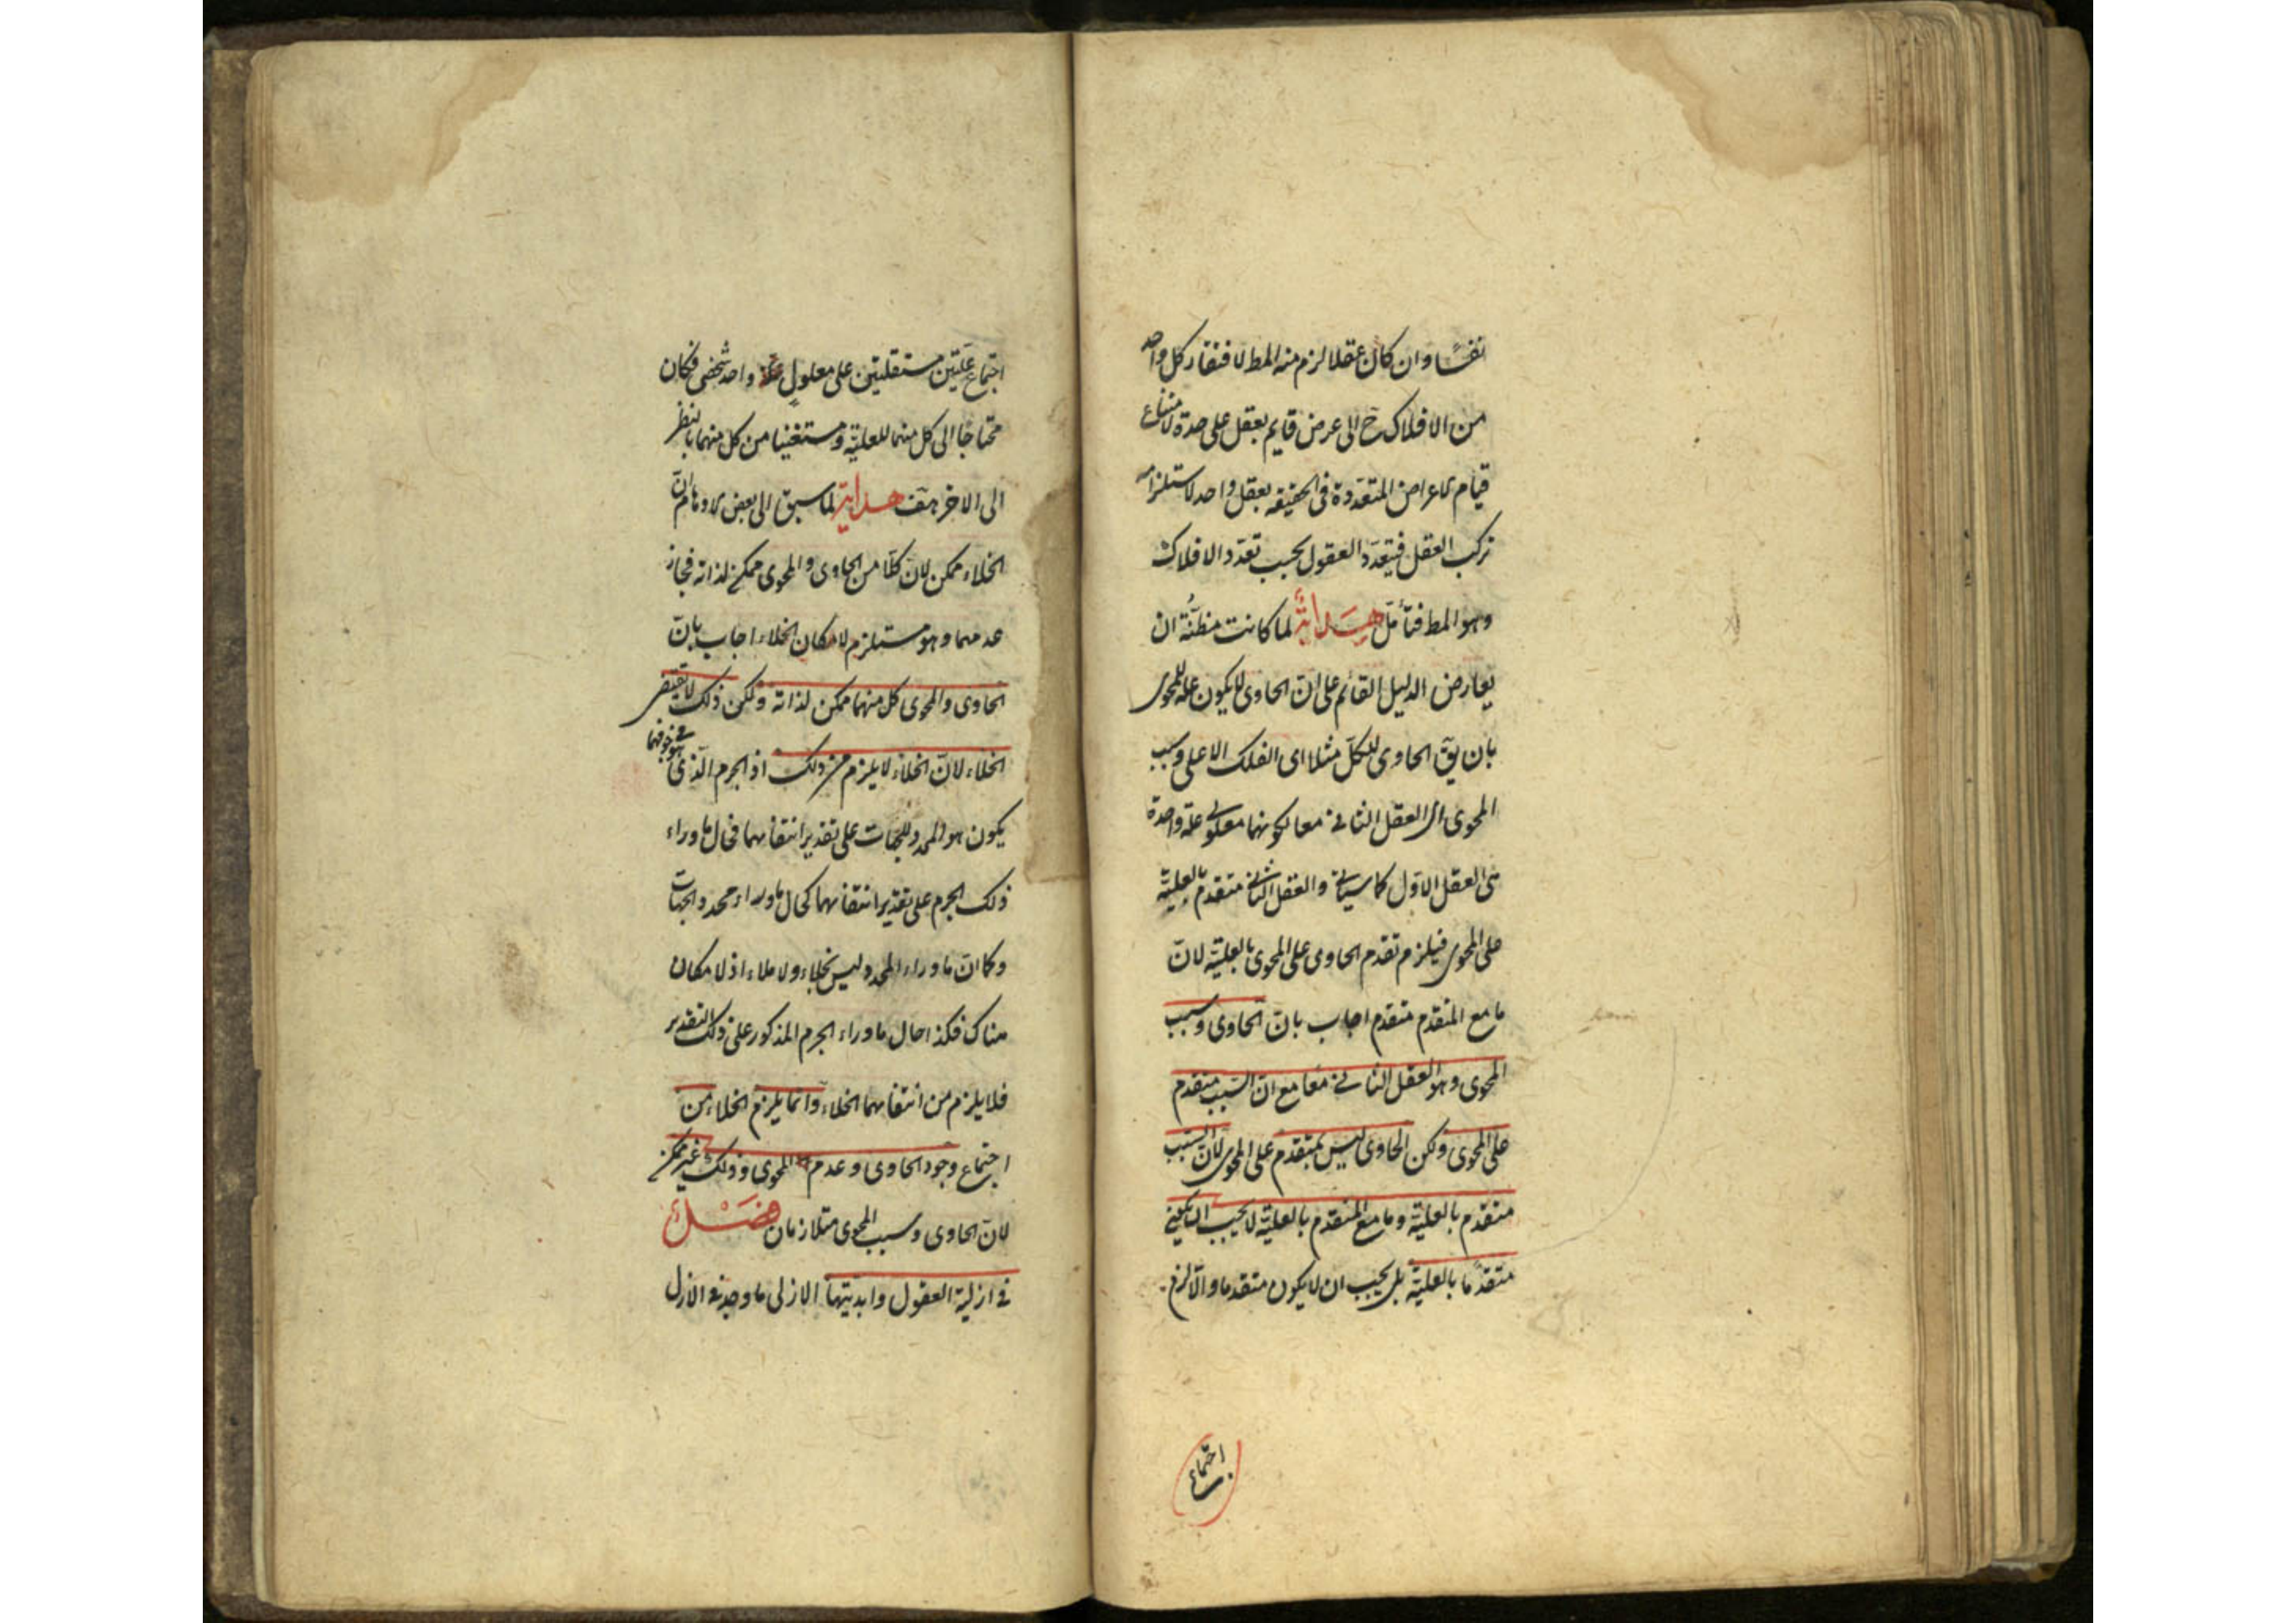 نفسًا وان كان عقلا لزم منه المط لافتقار كل واحد
من الافلاك ح الى عرض قايم بعقل على حدة لامتناع
قيام الاعراض المتعددة فى الحقيقه بعقل واحد لاستلزامه
تركب العقل فيتعدد العقول بحسب تعدد الافلاك
وهو المط فتأمل هداية لما كانت مظنة ان
يعارض الدليل القائم على ان الحاوى لا يكون علة للمحوى
بان يق الحاوى للكل مثلا اى الفلك الاعلى وسبب
المحوى اى العقل الثانى معا لكونهما معلولى علة واحدة
هى العقل الاول كما سيأتى والعقل الثانى متقدم بالعلية
على المحوى فيلزم تقدم الحاوى على المحوى بالعلية لان
ما مع المتقدم متقدم اجاب بان الحاوى وسبب
المحوى وهو العقل الثانى معا مع ان السبب متقدم
على المحوى ولكن الحاوى ليس بمتقدم على المحوى لان السبب
متقدم بالعلية وما مع المتقدم بالعلية لا يجب ان يكون
متقدمًا بالعلية بل يجب ان لا يكون متقدما والا لزم
اجتماع
اجتماع علتين مستقلتين على معلول واحد شخصى فكان
محتاجًا الى كل منهما للعلية ومستغنيا من كل منهما بالنظر
الى الاخر هف هداية لما سبق الى بعض الاوهام ان
الخلاء ممكن لان كلا من الحاوى والمحوى ممكن لذاته فجاز
عدمهما وهو مستلزم لامكان الخلاء اجاب بان
الحاوى والمحوى كل منهما ممكن لذاته ولكن ذلك لا يقتضى
الخلاء لان الخلاء لا يلزم من ذلك اذ الجرم الذى هو فى جوفهما
يكون هو المحدد للجهات على تقدير انتفائهما فحال ما وراء
ذلك الجرم على تقدير انتفائهما كحال ما وراء محدد الجهات
وكما ان ما وراء المحدد ليس بخلاء ولا ملاء اذ لا مكان
هناك فكذا حال ما وراء الجرم المذكور على ذلك التقدير
فلا يلزم من انتفائهما الخلاء وانما يلزم الخلاء من
اجتماع وجود الحاوى وعدم المحوى وذلك غير ممكن
لان الحاوى وسبب المحوى متلازمان فصل
فى ازلية العقول وابديتها الازلى ما وجد فى الازل